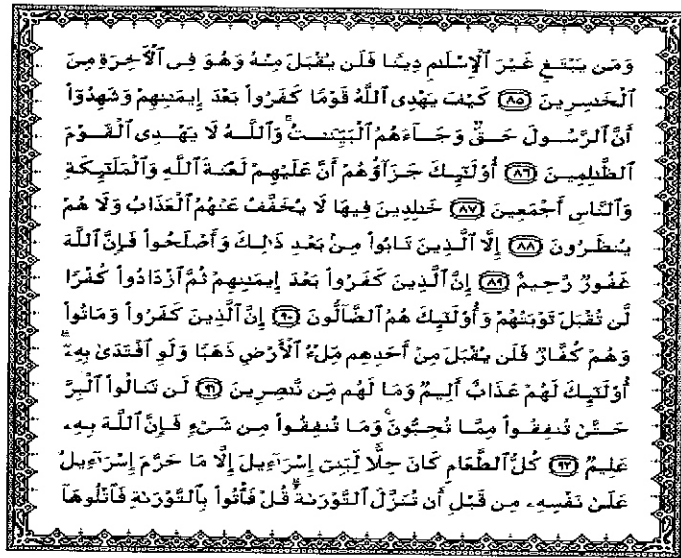 وَمَن يَبْتَغِ غَيْرَ ٱلْإِسْلَٰمِ دِينًا فَلَن يُقْبَلَ مِنْهُ وَهُوَ فِى ٱلْأَخِرَةِ مِنَ
ٱلْخَٰسِرِينَ ﴿٨٥﴾ كَيْفَ يَهْدِى ٱللَّهُ قَوْمًا كَفَرُواْ بَعْدَ إِيمَٰنِهِمْ وَشَهِدُوٓاْ
أَنَّ ٱلرَّسُولَ حَقٌّ وَجَآءَهُمُ ٱلْبَيِّنَٰتُ ۚ وَٱللَّهُ لَا يَهْدِى ٱلْقَوْمَ
ٱلظَّٰلِمِينَ ﴿٨٦﴾ أُوْلَٰٓئِكَ جَزَآؤُهُمْ أَنَّ عَلَيْهِمْ لَعْنَةَ ٱللَّهِ وَٱلْمَلَٰٓئِكَةِ
وَٱلنَّاسِ أَجْمَعِينَ ﴿٨٧﴾ خَٰلِدِينَ فِيهَا لَا يُخَفَّفُ عَنْهُمُ ٱلْعَذَابُ وَلَا هُمْ
يُنظَرُونَ ﴿٨٨﴾ إِلَّا ٱلَّذِينَ تَابُواْ مِنۢ بَعْدِ ذَٰلِكَ وَأَصْلَحُواْ فَإِنَّ ٱللَّهَ
غَفُورٌ رَّحِيمٌ ﴿٨٩﴾ إِنَّ ٱلَّذِينَ كَفَرُواْ بَعْدَ إِيمَٰنِهِمْ ثُمَّ ٱزْدَادُواْ كُفْرًا
لَّن تُقْبَلَ تَوْبَتُهُمْ وَأُوْلَٰٓئِكَ هُمُ ٱلضَّآلُّونَ ﴿٩٠﴾ إِنَّ ٱلَّذِينَ كَفَرُواْ وَمَاتُواْ
وَهُمْ كُفَّارٌ فَلَن يُقْبَلَ مِنْ أَحَدِهِم مِّلْءُ ٱلْأَرْضِ ذَهَبًا وَلَوِ ٱفْتَدَىٰ بِهِۦٓ ۗ
أُوْلَٰٓئِكَ لَهُمْ عَذَابٌ أَلِيمٌ وَمَا لَهُم مِّن نَّٰصِرِينَ ﴿٩١﴾ لَن تَنَالُواْ ٱلْبِرَّ
حَتَّىٰ تُنفِقُواْ مِمَّا تُحِبُّونَ ۚ وَمَا تُنفِقُواْ مِن شَىْءٍ فَإِنَّ ٱللَّهَ بِهِۦ
عَلِيمٌ ﴿٩٢﴾ كُلُّ ٱلطَّعَامِ كَانَ حِلًّا لِّبَنِىٓ إِسْرَٰٓءِيلَ إِلَّا مَا حَرَّمَ إِسْرَٰٓءِيلُ
عَلَىٰ نَفْسِهِۦ مِن قَبْلِ أَن تُنَزَّلَ ٱلتَّوْرَىٰةُ ۗ قُلْ فَأْتُواْ بِٱلتَّوْرَىٰةِ فَٱتْلُوهَآ